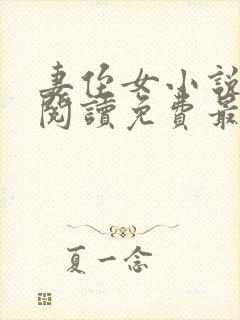 妻侄女小說
閱讀免費最
夏一念